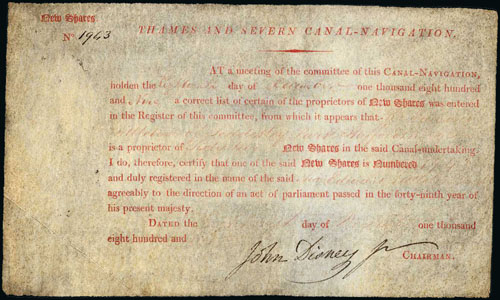 New Shares
No 1943
THAMES AND SEVERN CANAL-NAVIGATION.
AT a meeting of the committee of this CANAL-NAVIGATION,
holden the day of one thousand eight hundred
and a correct list of certain of the proprietors of New Shares was entered
in the Register of this committee, from which it appears that
is a proprietor of New Shares in the said Canal-undertaking.
I do, therefore, certify that one of the said New Shares is Numbered
and duly registered in the name of the said
agreeably to the direction of an act of parliament passed in the forty-ninth year of
his present majesty.
DATED the day of one thousand
eight hundred and
John Disney Jr
CHAIRMAN.